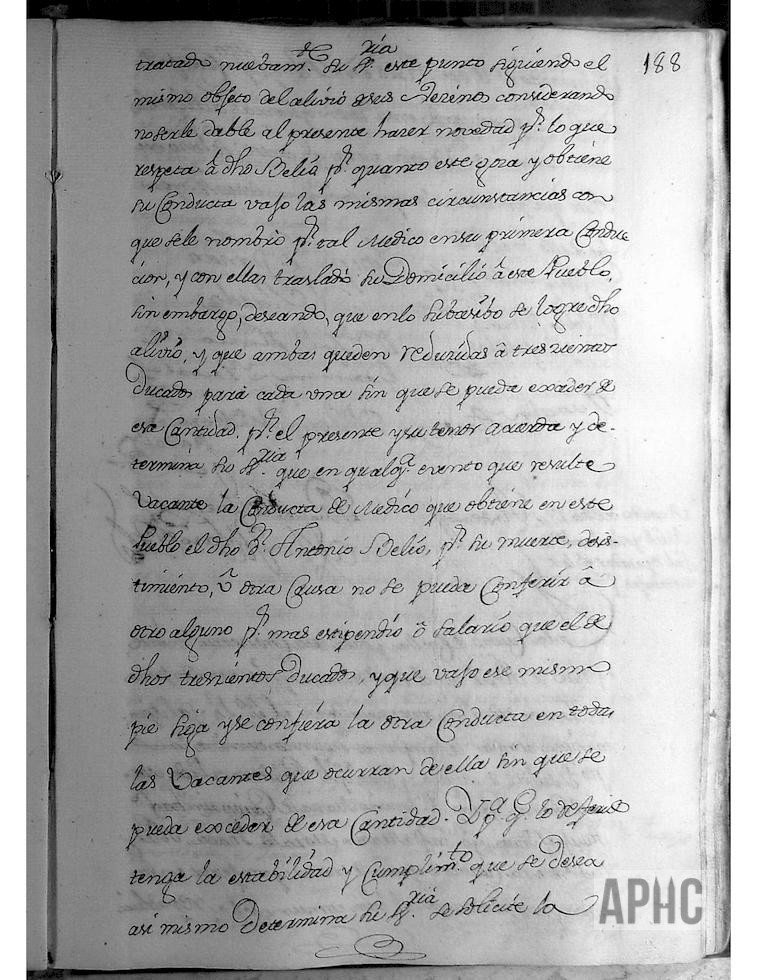 188
tratado nuebamte. su Sria este punto siguiendo el
mismo objeto del alivio de sus Vezinos considerando
no serle dable al presente hazer novedad pr. lo que
respeta â dho Delio pr. quanto este goza y obtiene
su Conducta vajo las mismas circunstancias con
que se le nombrò pr. tal Medico en su primera Conduc
cion, y con ellas trasladò su Domicilio â este Pueblo,
sin embargo, deseando, que en lo subcesibo se logre dho
alivio, y que ambas queden reduzidas â tres zientos
Ducados para cada una sin que se pueda exceder de
esa Cantidad. pr. el presente y su tenor acuerda y de-
termina su Sria. que en qualqa. evento que resulte
Vacante la Conducta de Medico que obtiene en este
Pueblo el dho Dn. Antonio Delio, pr. su muerte, desis-
timiento, û otra Causa no se pueda Conferir â
otro alguno pr. mas estipendio ô salario que el de
dhos treszientos Ducados, y que vajo ese mismo
pie siga y se confiera la otra Conducta en todas
las Vacantes que ocurran de ella sin que se
pueda exceder de esa Cantidad. Y pa. q. lo deferido
tenga la estabilidad y Cumplimto. que se desea
asi mismo Determina su Sria. se solicite la
APHC